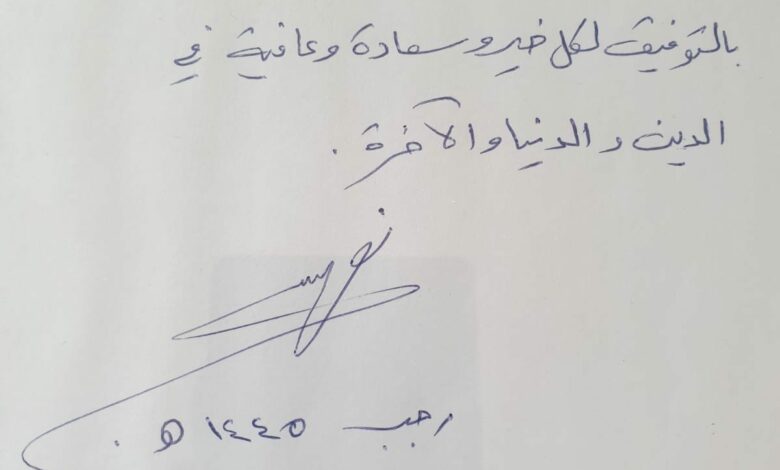 بالتوفيق لكل خير وسعادة وعافية في
الدين والدنيا والآخرة .
رجب ١٤٤٥ هـ .